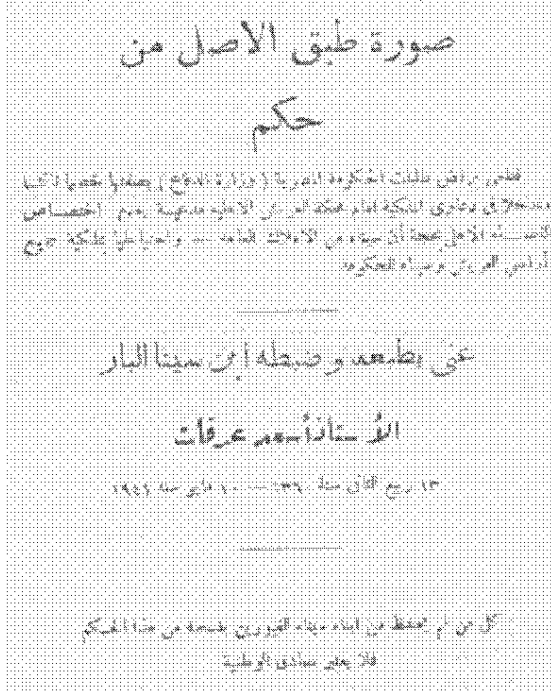 صورة طبق الأصل من
حكم
قضى برفض طلبات الحكومة المصرية ( وزارة الدفاع ) بصفتها خصما ثالثا
في دعوى الملكية أمام محكمة العريش الأهلية بعدم اختصاص
القضاء الأهلي بحجة أن سيناء من الأملاك العامة — واحتياطيا بملكية جميع
أراضي العريش وسيناء للحكومة
عنى بطبعه وضبطه ابن سينا البار
الأستاذ أسعد عرفات
١٣ ربيع الثاني سنة — ١٠ مايو سنة ١٩٤١
كل من لم يحتفظ من أبناء سيناء الغيورين بنسخة من هذا الحكم
فلا يعتبر صادق الوطنية